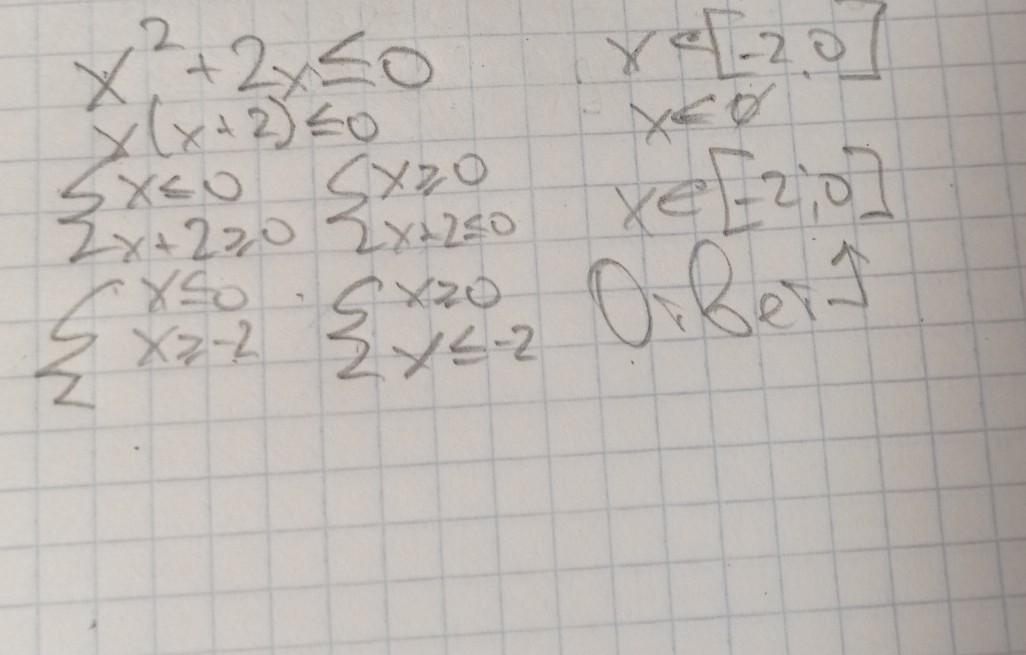 x² + 2x ≤ 0
x(x+2) ≤ 0
{ x ≤ 0 { x ≥ 0
{ x+2 ≥ 0 { x+2 ≤ 0
{ x ≤ 0 { x ≥ 0
{ x ≥ -2 { x ≤ -2
x ∈ [-2,0]
x ∈ ∅
x ∈ [-2;0]
Ответ ↑